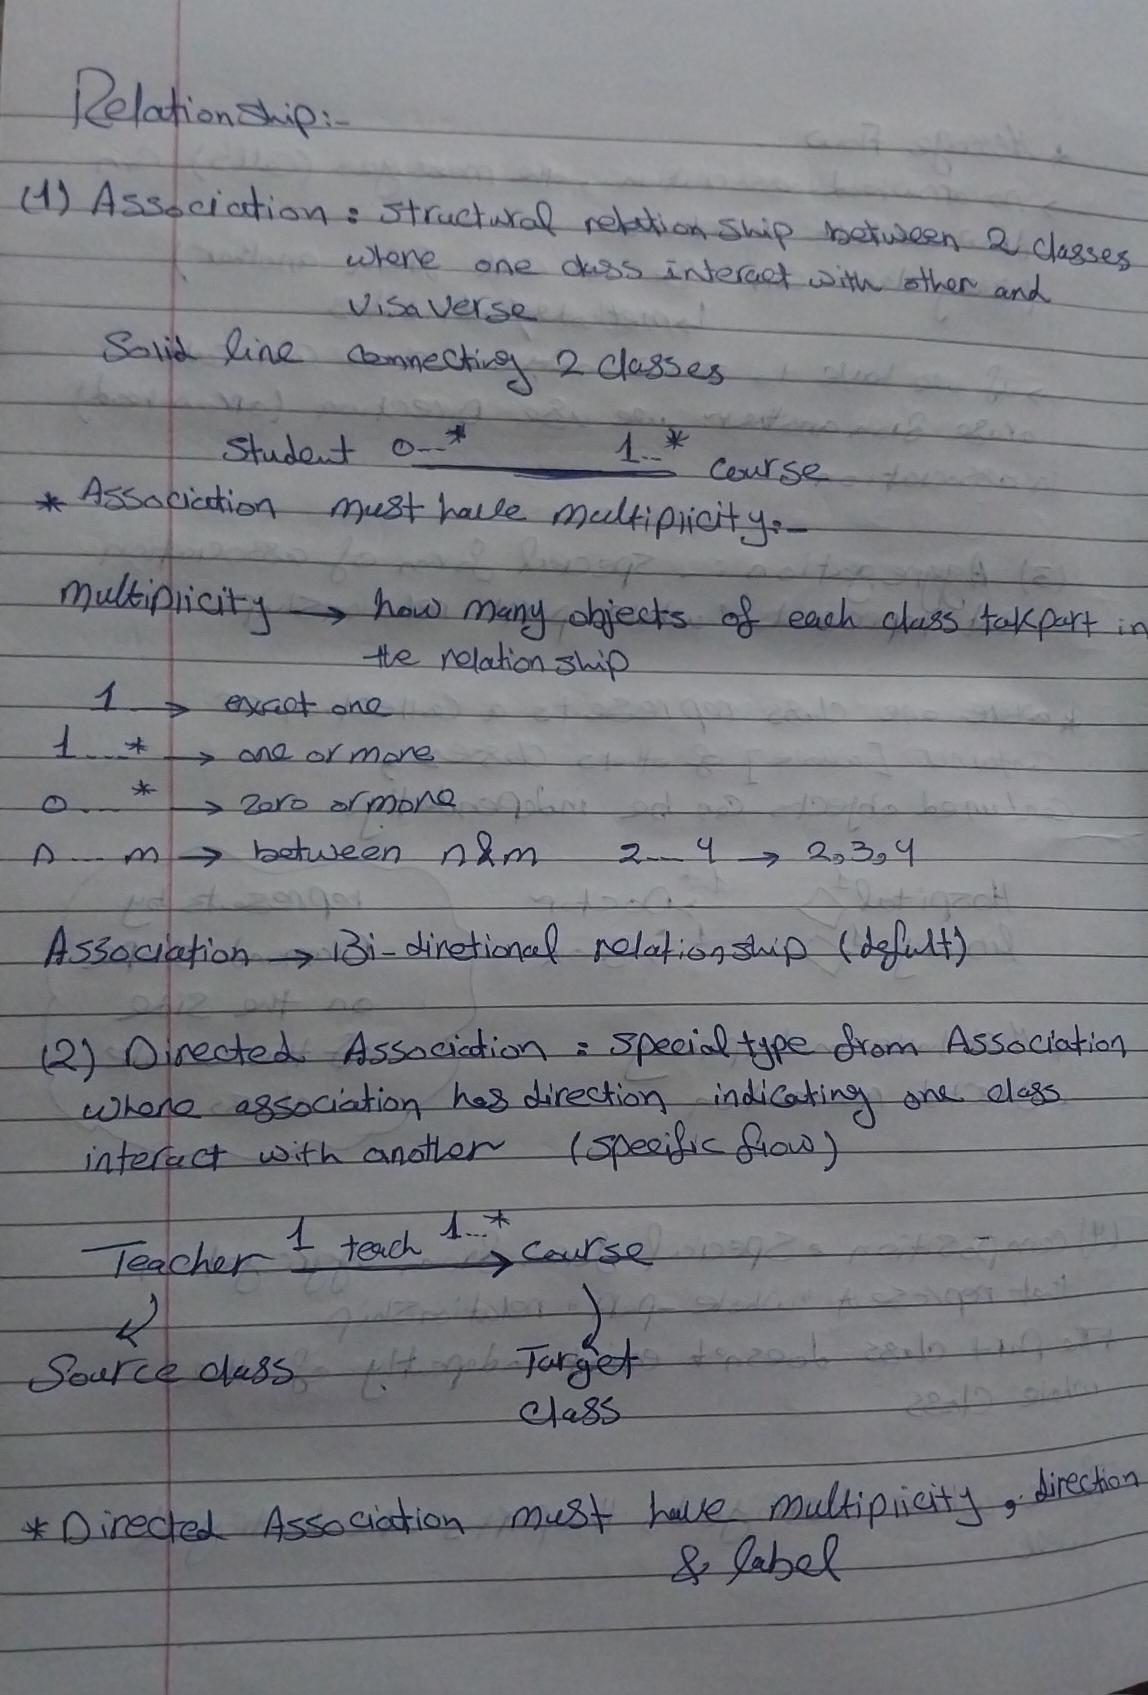 Relationship:-
(1) Association : structural relationship between 2 classes
where one class interact with other and
visaverse
Solid line connecting 2 classes
Student 0...* 1..* course
* Association must have multiplicity:-
multiplicity → how many objects of each class takpart in
the relationship
1 → exact one
1...* → one or more
0...* → zero or more
n...m → between n&m 2...4 → 2,3,4
Association → Bi-diretional relationship (defult)
(2) Directed Association : special type from Association
where association has direction indicating one class
interact with another (specific flow)
Teacher 1 teach 1...* course
Source class Target
class
* Directed Association must have multiplicity, direction
& label